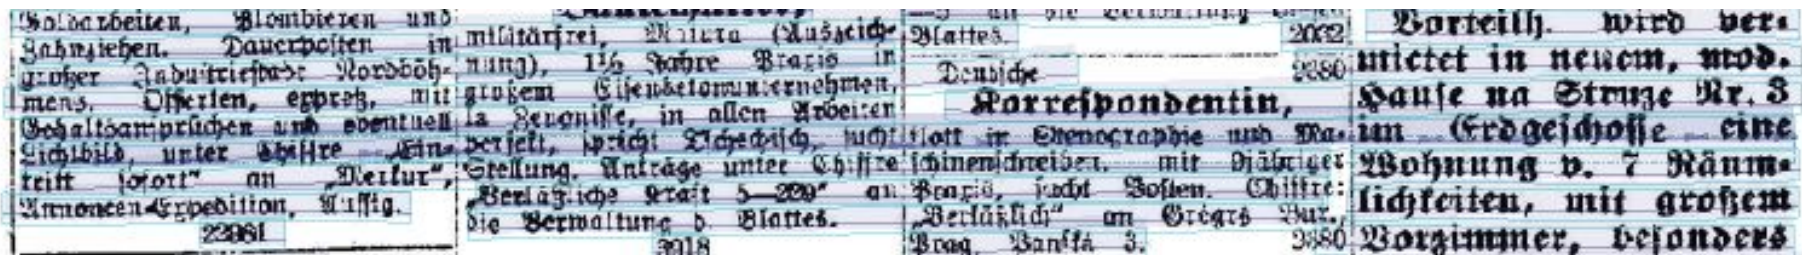 Goldarbeiten, Plombieren und
Zahnziehen. Dauerposten in
großer Industriestadt Nordböh-
mens. Offerten, expreß, mit
Gehaltsansprüchen und eventuell
Lichtbild, unter Chiffre „Ein-
tritt sofort" an „Merkur",
Annoncen-Expedition, Aussig.
militärfrei, Matura (Auszeich-
nung), 1½ Jahre Praxis in
großem Eisenbetonunternehmen,
Ia Zeugnisse, in allen Arbeiten
perfekt, spricht Tschechisch, sucht
Stellung. Anträge unter Chiffre
„Verläßliche Kraft 5—229" an
die Verwaltung d. Blattes.
3918
Blattes. 2032
Deutsche 2380
Korrespondentin,
flott in Stenographie und Ma-
schinenschreiben, mit 9jähriger
Praxis, sucht Posten. Chiffre:
„Verläßlich" an Grégrs Bur.,
Prag, Panská 3. 2380
Vorteilh. wird ver-
mietet in neuem, mod.
Hause na Struze Nr. 3
im Erdgeschosse eine
Wohnung v. 7 Räum-
lichkeiten, mit großem
Vorzimmer, besonders